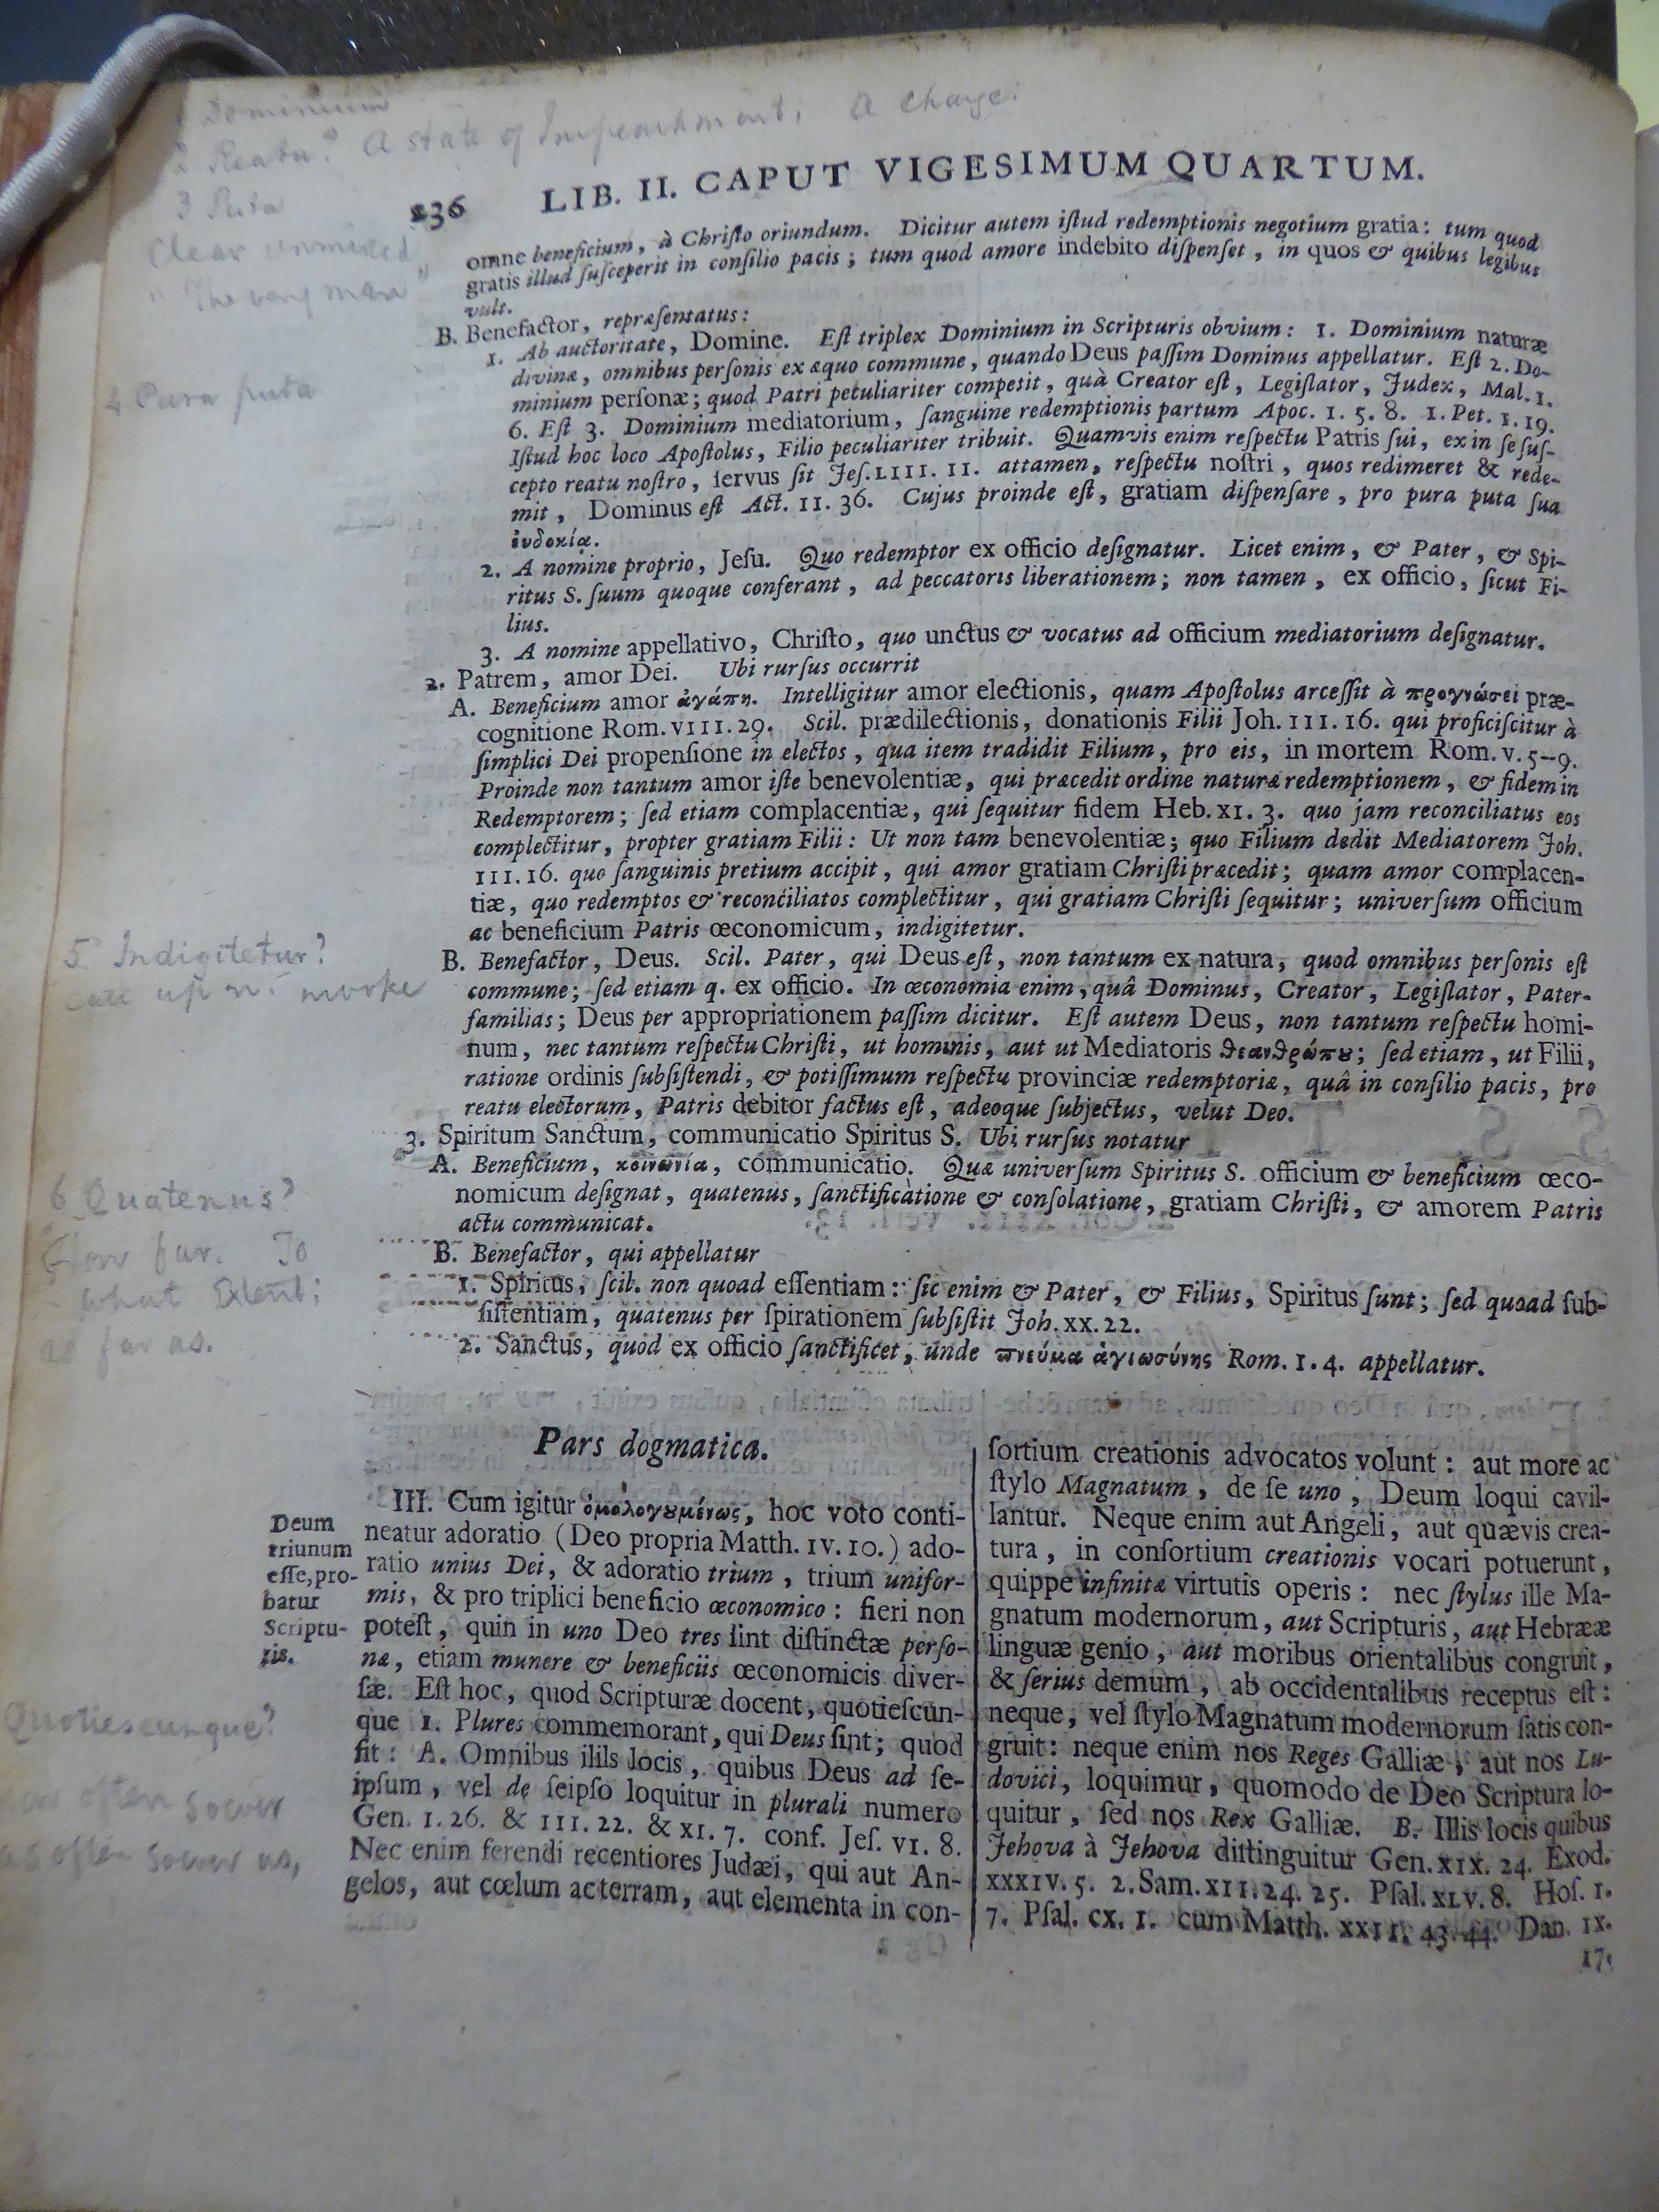 1 Dominium
2 Reatu? A state of Impeachment; A charge;
3 Puta
Clear unmixed
" The very man "
4 Pura puta
5 Indigitetur?
call upon. invoke
6 Quatenus?
How far. To
what Extent;
as far as.
Quotiescunque?
often soever
as often soever as,
236 LIB. II. CAPUT VIGESIMUM QUARTUM.
omne beneficium, à Chriſto oriundum. Dicitur autem iſtud redemptionis negotium gratia: tum quod
gratis illud ſuſceperit in conſilio pacis; tum quod amore indebito diſpenſet, in quos & quibus legibus
vult.
B. Benefactor, repræſentatus:
1. Ab auctoritate, Domine. Eſt triplex Dominium in Scripturis obvium: 1. Dominium naturæ
divinæ, omnibus perſonis ex æquo commune, quando Deus paſſim Dominus appellatur. Eſt 2. Do-
minium perſonæ; quod Patri peculiariter competit, quà Creator eſt, Legiſlator, Judex, Mal. I.
6. Eſt 3. Dominium mediatorium, ſanguine redemptionis partum Apoc. I. 5. 8. I. Pet. I. 19.
Iſtud hoc loco Apoſtolus, Filio peculiariter tribuit. Quamvis enim reſpectu Patris ſui, ex in ſe ſuſ-
cepto reatu noſtro, ſervus ſit Jeſ. LIII. II. attamen, reſpectu noſtri, quos redimeret & rede-
mit, Dominus eſt Act. II. 36. Cujus proinde eſt, gratiam diſpenſare, pro pura puta ſua
ἐυδοκίᾳ.
2. A nomine proprio, Jeſu. Quo redemptor ex officio deſignatur. Licet enim, & Pater, & Spi-
ritus S. ſuum quoque conferant, ad peccatoris liberationem; non tamen, ex officio, ſicut Fi-
lius.
3. A nomine appellativo, Chriſto, quo unctus & vocatus ad officium mediatorium deſignatur.
2. Patrem, amor Dei. Ubi rurſus occurrit
A. Beneficium amor ἀγάπη. Intelligitur amor electionis, quam Apoſtolus arceſſit à προγνώσει præ-
cognitione Rom. VIII. 29. Scil. prædilectionis, donationis Filii Joh. III. 16. qui proficiſcitur à
ſimplici Dei propenſione in electos, qua item tradidit Filium, pro eis, in mortem Rom. V. 5--9.
Proinde non tantum amor iſte benevolentiæ, qui præcedit ordine naturæ redemptionem, & fidem in
Redemptorem; ſed etiam complacentiæ, qui ſequitur fidem Heb. XI. 3. quo jam reconciliatus eos
complectitur, propter gratiam Filii: Ut non tam benevolentiæ; quo Filium dedit Mediatorem Joh.
III. 16. quo ſanguinis pretium accipit, qui amor gratiam Chriſti præcedit; quam amor complacen-
tiæ, quo redemptos & reconciliatos complectitur, qui gratiam Chriſti ſequitur; univerſum officium
ac beneficium Patris œconomicum, indigitetur.
B. Benefactor, Deus. Scil. Pater, qui Deus eſt, non tantum ex natura, quod omnibus perſonis eſt
commune; ſed etiam q. ex officio. In œconomia enim, quâ Dominus, Creator, Legiſlator, Pater-
familias; Deus per appropriationem paſſim dicitur. Eſt autem Deus, non tantum reſpectu homi-
num, nec tantum reſpectu Chriſti, ut hominis, aut ut Mediatoris θεανθρώπου; ſed etiam, ut Filii,
ratione ordinis ſubſiſtendi, & potiſſimum reſpectu provinciæ redemptoriæ, quâ in conſilio pacis, pro
reatu electorum, Patris debitor factus eſt, adeoque ſubjectus, velut Deo.
3. Spiritum Sanctum, communicatio Spiritus S. Ubi rurſus notatur
A. Beneficium, κοινωνία, communicatio. Quæ univerſum Spiritus S. officium & beneficium œco-
nomicum deſignat, quatenus, ſanctificatione & conſolatione, gratiam Chriſti, & amorem Patris
actu communicat.
B. Benefactor, qui appellatur
1. Spiritus, ſcil. non quoad eſſentiam: ſic enim & Pater, & Filius, Spiritus ſunt; ſed quoad ſub-
ſiſtentiam, quatenus per ſpirationem ſubſiſtit Joh. XX. 22.
2. Sanctus, quod ex officio ſanctificet, unde πνεύμα ἁγιωσύνης Rom. I. 4. appellatur.
Pars dogmatica.
Deum
triunum
eſſe, pro-
batur
Scriptu-
ris.
III. Cum igitur ὁμολογουμένως, hoc voto conti-
neatur adoratio (Deo propria Matth. IV. 10.) ado-
ratio unius Dei, & adoratio trium, trium unifor-
mis, & pro triplici beneficio œconomico: fieri non
poteſt, quin in uno Deo tres ſint diſtinctæ perſo-
næ, etiam munere & beneficiis œconomicis diver-
ſæ. Eſt hoc, quod Scripturæ docent, quotieſcun-
que 1. Plures commemorant, qui Deus ſint; quod
fit: A. Omnibus illis locis, quibus Deus ad ſe-
ipſum, vel de ſeipſo loquitur in plurali numero
Gen. I. 26. & III. 22. & XI. 7. conf. Jeſ. VI. 8.
Nec enim ferendi recentiores Judæi, qui aut An-
gelos, aut cœlum ac terram, aut elementa in con-
ſortium creationis advocatos volunt: aut more ac
ſtylo Magnatum, de ſe uno, Deum loqui cavil-
lantur. Neque enim aut Angeli, aut quævis crea-
tura, in conſortium creationis vocari potuerunt,
quippe infinitæ virtutis operis: nec ſtylus ille Ma-
gnatum modernorum, aut Scripturis, aut Hebrææ
linguæ genio, aut moribus orientalibus congruit,
& ſerius demum, ab occidentalibus receptus eſt:
neque, vel ſtylo Magnatum modernorum ſatis con-
gruit: neque enim nos Reges Galliæ, aut nos Lu-
dovici, loquimur, quomodo de Deo Scriptura lo-
quitur, ſed nos Rex Galliæ. B. Illis locis quibus
Jehova à Jehova diſtinguitur Gen. XIX. 24. Exod.
XXXIV. 5. 2. Sam. XII. 24. 25. Pſal. XLV. 8. Hoſ. I.
7. Pſal. CX. I. cum Matth. XXII. 43. 44. Dan. IX.
17.